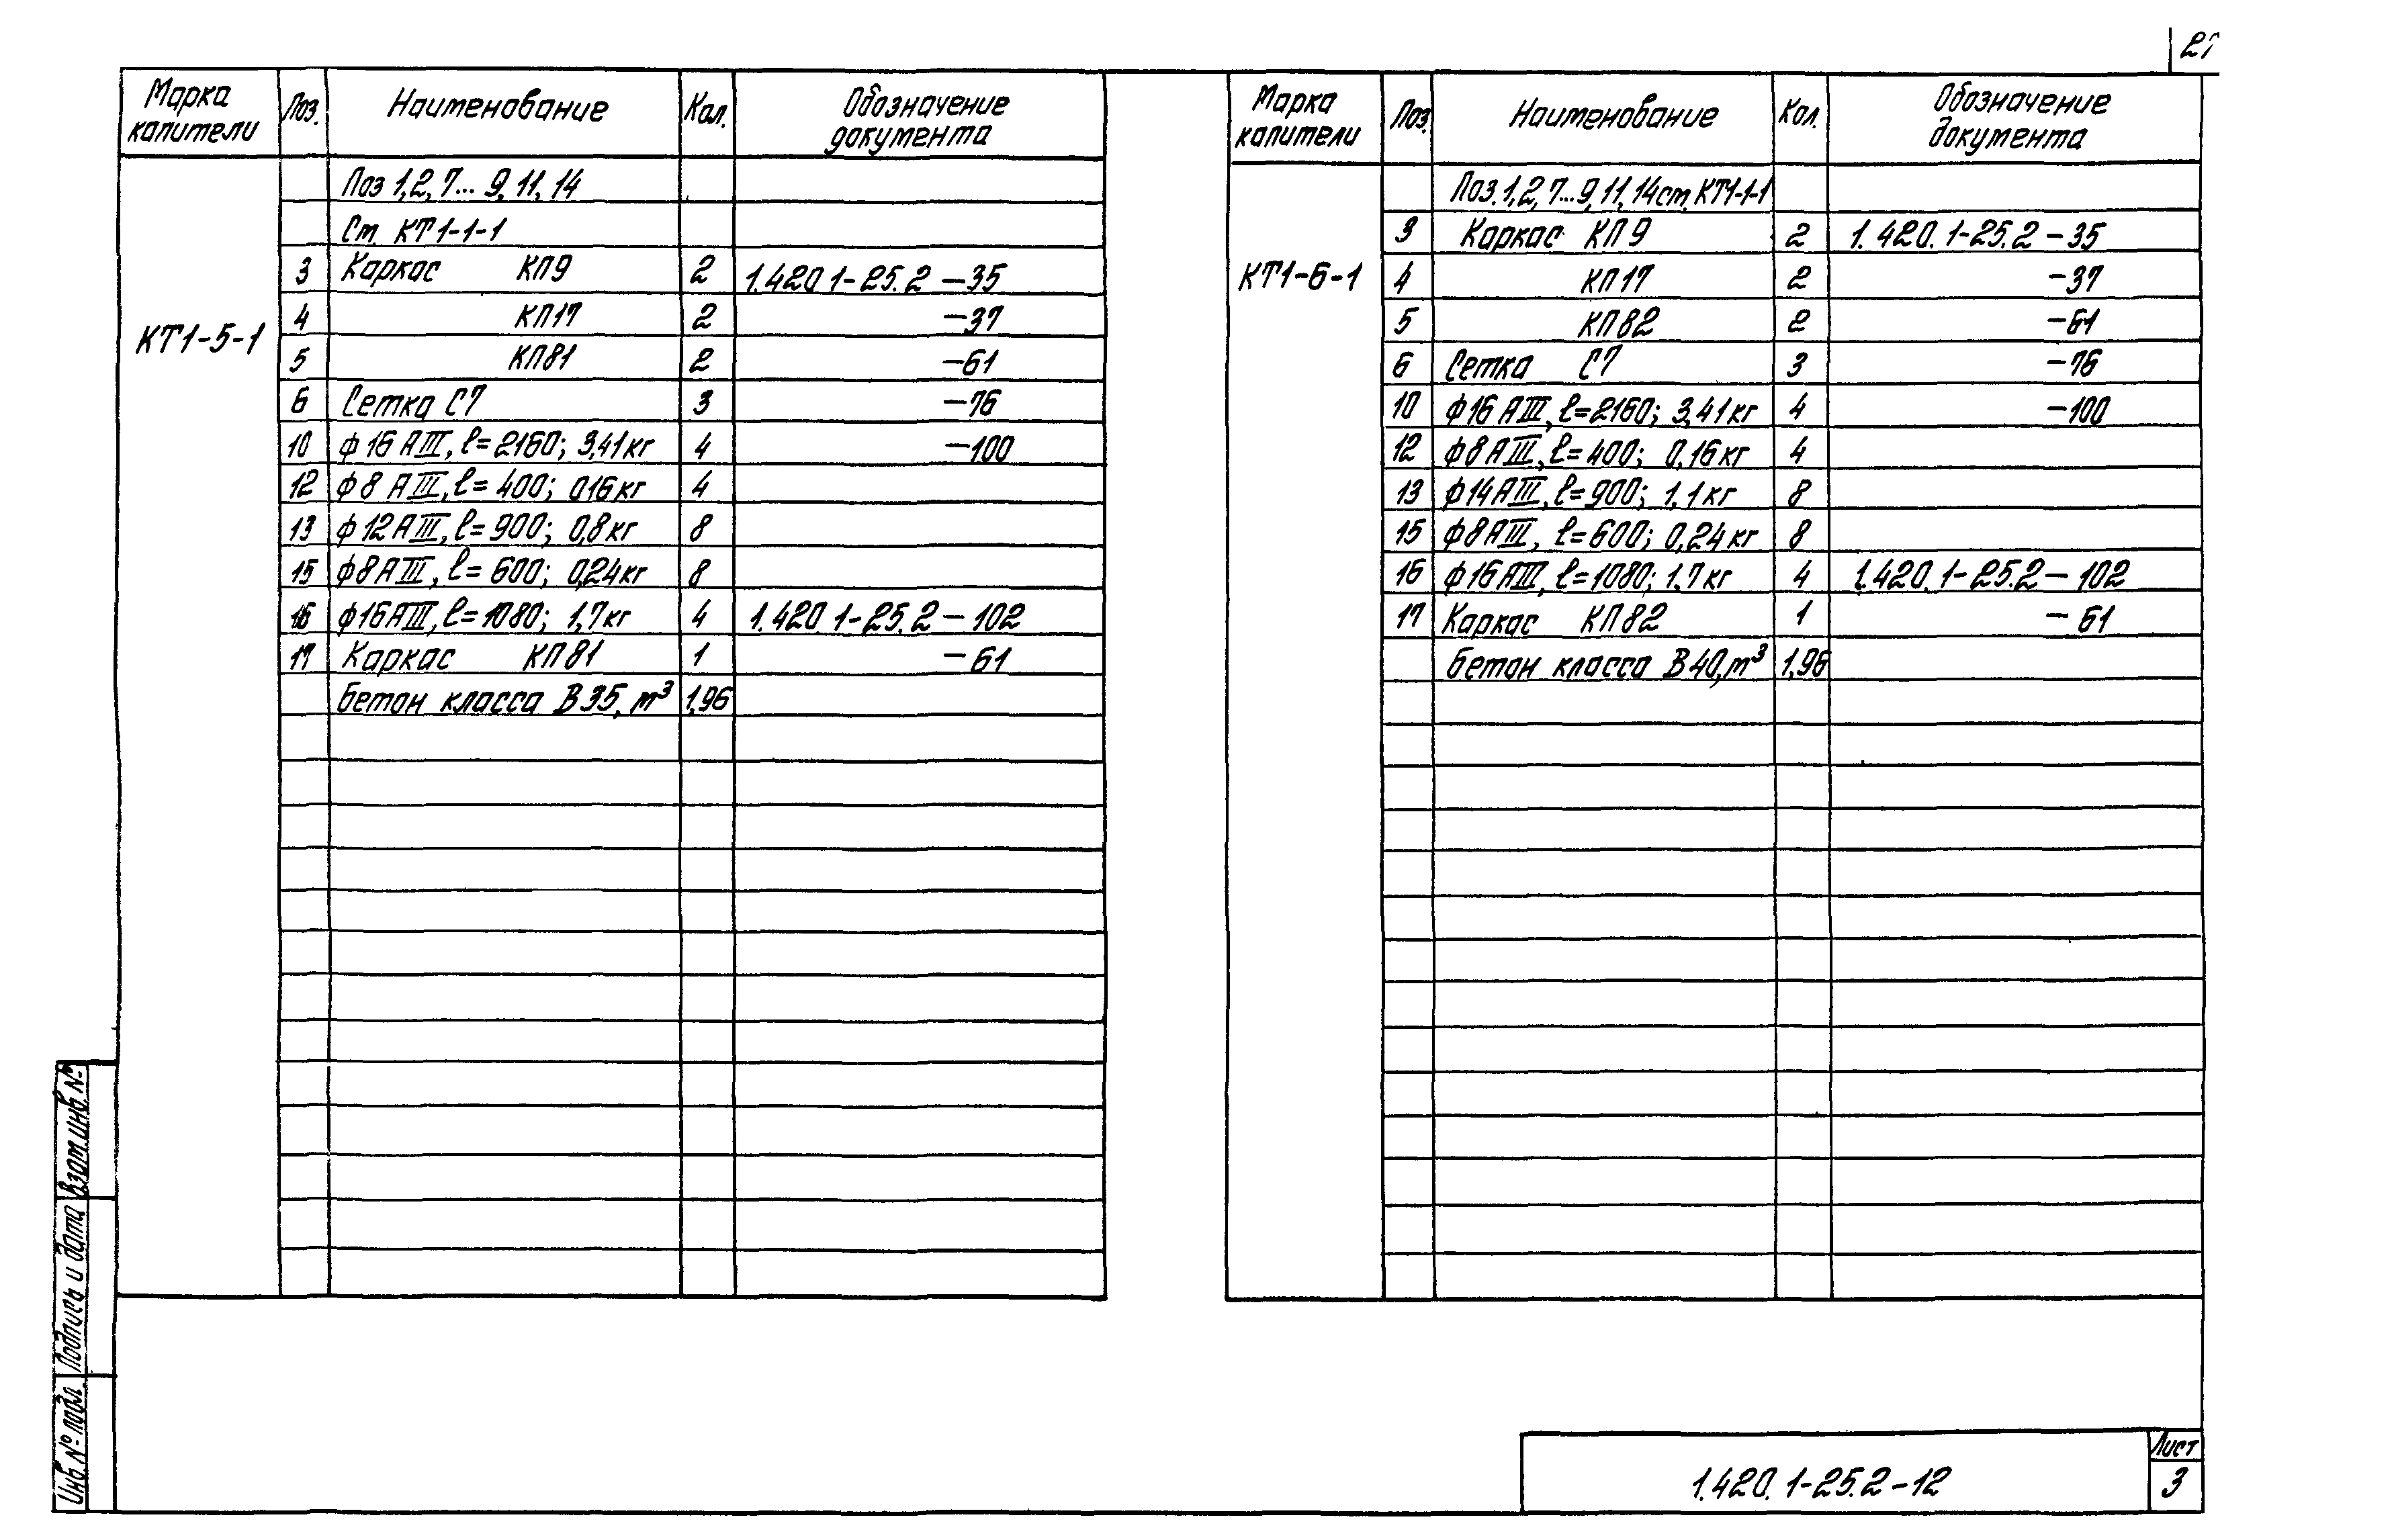 27
Марка капители Поз. Наименование Кол. Обозначение документа
Поз 1,2,7... 9, 11, 14
См КТ1-1-1
3 Каркас КП9 2 1.420.1-25.2 -35
4 КП17 2 -37
КТ1-5-1
5 КП81 2 -61
6 Сетка С7 3 -76
10 ф16АIII, ℓ=2160; 3,41кг 4 -100
12 ф8 АIII, ℓ=400; 0,16кг 4
13 ф12АIII, ℓ=900; 0,8кг 8
15 ф8АIII, ℓ=600; 0,24кг 8
16 ф16АIII, ℓ=1080; 1,7кг 4 1.420.1-25.2-102
17 Каркас КП81 1 -61
бетон класса В35, m³ 1,96
Марка капители Поз. Наименование Кол. Обозначение документа
Поз. 1,2,7...9,11,14 см. КТ1-1-1
3 Каркас КП9 2 1.420.1-25.2-35
КТ1-6-1 4 КП17 2 -37
5 КП82 2 -61
6 Сетка С7 3 -76
10 ф16АIII, ℓ=2160; 3,41кг 4 -100
12 ф8АIII, ℓ=400; 0,16кг 4
13 ф14АIII, ℓ=900; 1,1кг 8
15 ф8АIII, ℓ=600; 0,24кг 8
16 ф16АIII, ℓ=1080; 1,7кг 4 1.420.1-25.2-102
17 Каркас КП82 1 -61
бетон класса В40, m³ 1,96
Взам.инв.№
Подпись и дата
Инв.№ подл.
1.420.1-25.2-12
Лист
3